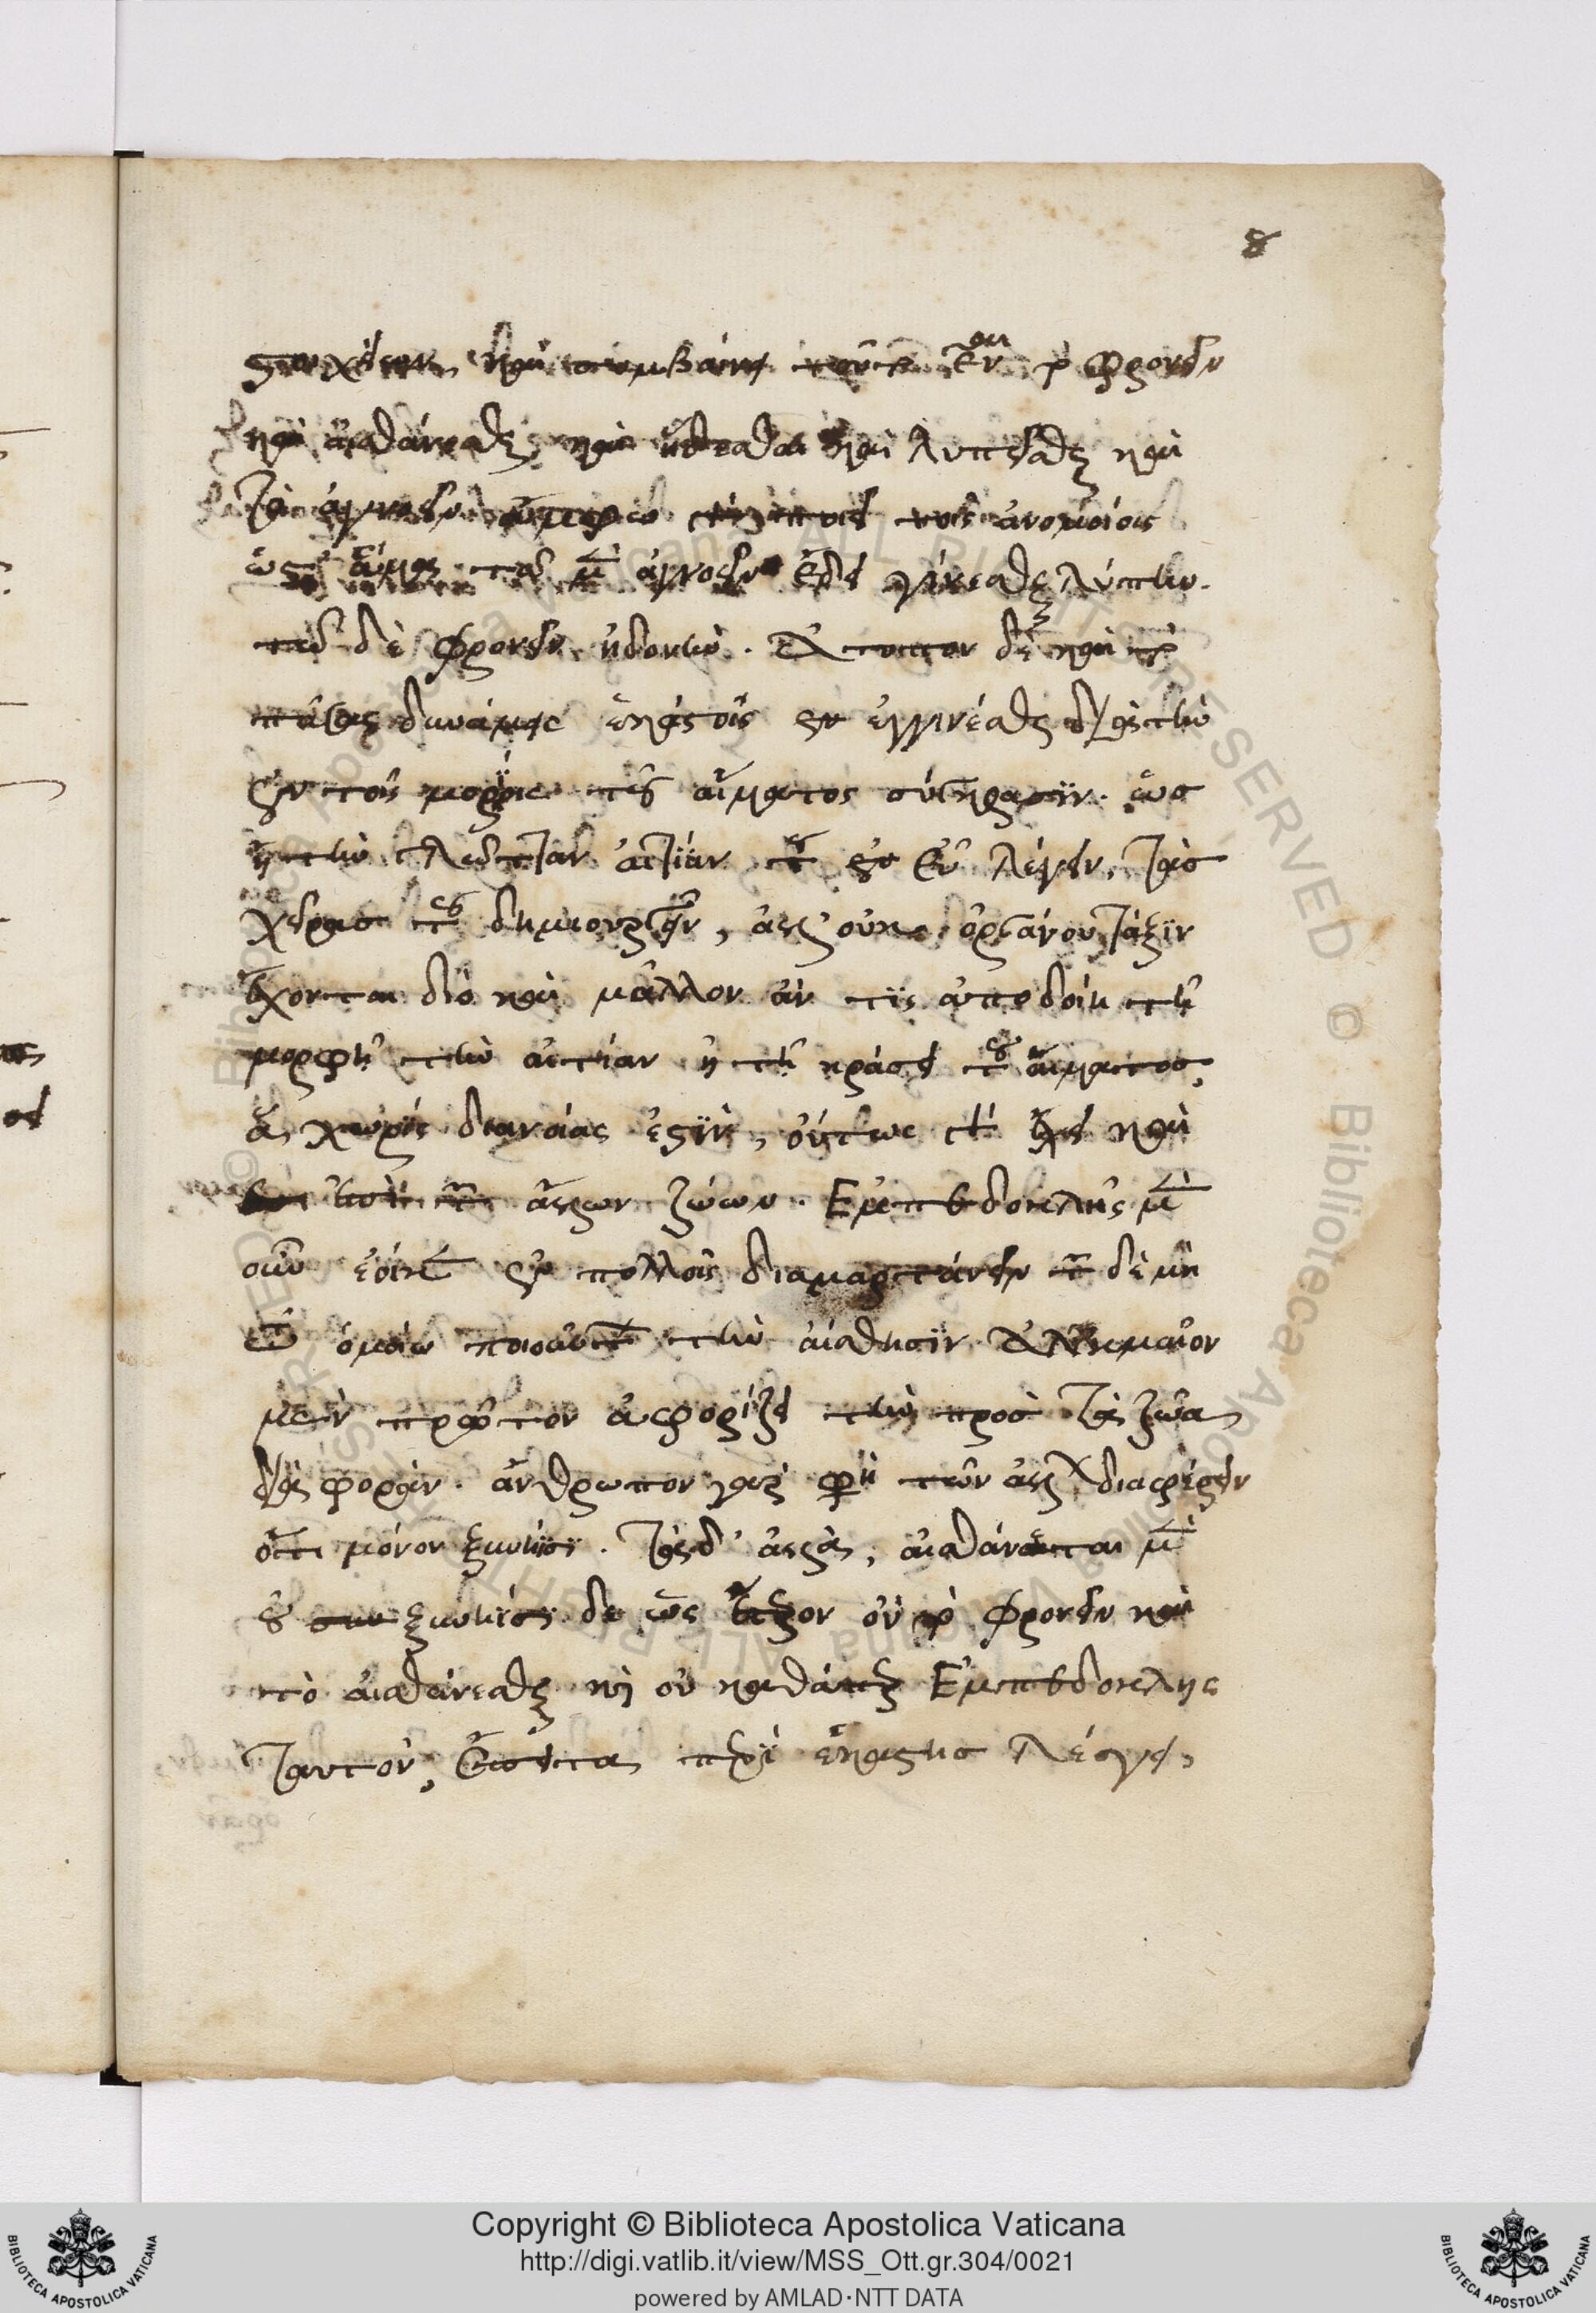 8
στοιχείων. καὶ συμβαίνει ταῦτα εἶναι τὸ φρονεῖν
καὶ αἰσθάνεσθαι καὶ ἥδεσθαι καὶ λυπεῖσθαι καὶ
τὸ ἀγνοεῖν ἄμφω ποιεῖ τοῖς ἀνομοίοις
ὥσθ' ἅμα τῷ μὲν ἀγνοεῖν ἔδει γίνεσθαι λύπην.
τῷ δὲ φρονεῖν ἡδονήν. ἄτοπον δὲ καὶ τὸ
τὰς δυνάμεις ἑκάστοις ἐγγίνεσθαι διὰ τὴν
ἐν τοῖς μορίοις τοῦ αἵματος σύγκρασιν. ὡς
ἢ τὴν γλῶτταν αἰτίαν τοῦ εὖ λέγειν, τὰς
χεῖρας τοῦ δημιουργεῖν, ἀλλ' οὐκ ὀργάνου τάξιν
ἔχοντα διὸ καὶ μᾶλλον ἄν τις ἀποδοίη τῇ
μορφῇ τὴν αἰτίαν ἢ τῇ κράσει τοῦ αἵματος,
ἃ χωρὶς διανοίας ἐστίν, οὕτως γὰρ ἔχει καὶ
ἐπὶ τῶν ἄλλων ζώων. Ἐμπεδοκλῆς μὲν
οὖν ἔοικεν ἐν πολλοῖς διαμαρτάνειν τῶν δὲ μὴ
τῷ ὁμοίῳ ποιούντων τὴν αἴσθησιν Ἀλκμαίων
μὲν πρῶτον ἀφορίζει τὴν πρὸς τὰ ζῶα
διαφοράν. ἄνθρωπον γάρ φησι τῶν ἄλλων διαφέρειν
ὅτι μόνον ξυνίησι. τὰ δ' ἄλλα, αἰσθάνεται μὲν
οὐ ξυνίησι δὲ ὡς ἕτερον ὂν τὸ φρονεῖν καὶ
τὸ αἰσθάνεσθαι καὶ οὐ καθάπερ Ἐμπεδοκλῆς
ταυτόν, ἔπειτα περὶ ἑκάστης λέγει,
Copyright © Biblioteca Apostolica Vaticana
http://digi.vatlib.it/view/MSS_Ott.gr.304/0021
powered by AMLAD·NTT DATA